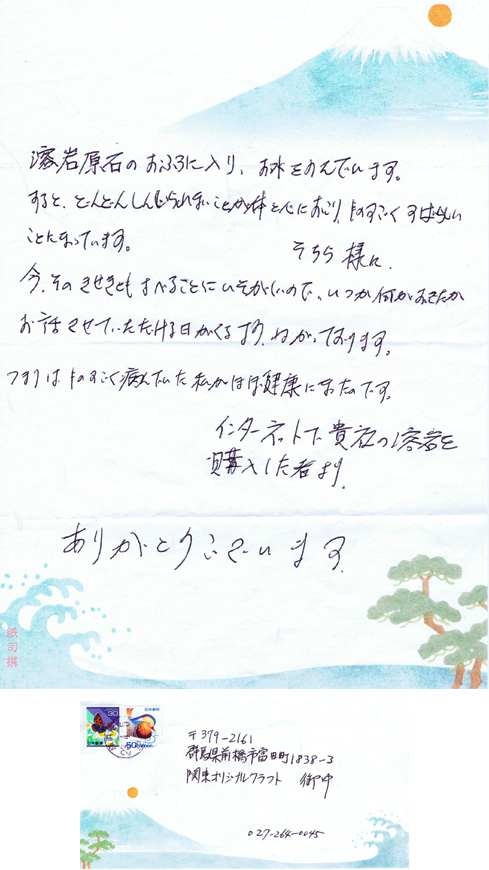 溶岩原石のおふろに入り、お水をのんでいます。
すると、とんとんしんじられないことが体と心におこり、ものすごくすばらしい
ことになっています。
そちら様に
今、そのきせきをすべることにいそがしいので、いつか何がおきたか
お話させていただける日がくるよう、ねがっております。
つまりはものすごく病んでいた私がほぼ健康になったのです。
インターネットで貴社の溶岩を
購入した者より。
ありがとうございます。
紙司撰
30
日本郵便
50
〒379-2161
群馬県前橋市富田町1838-3
関東オリジナルクラフト 御中
027-264-0045